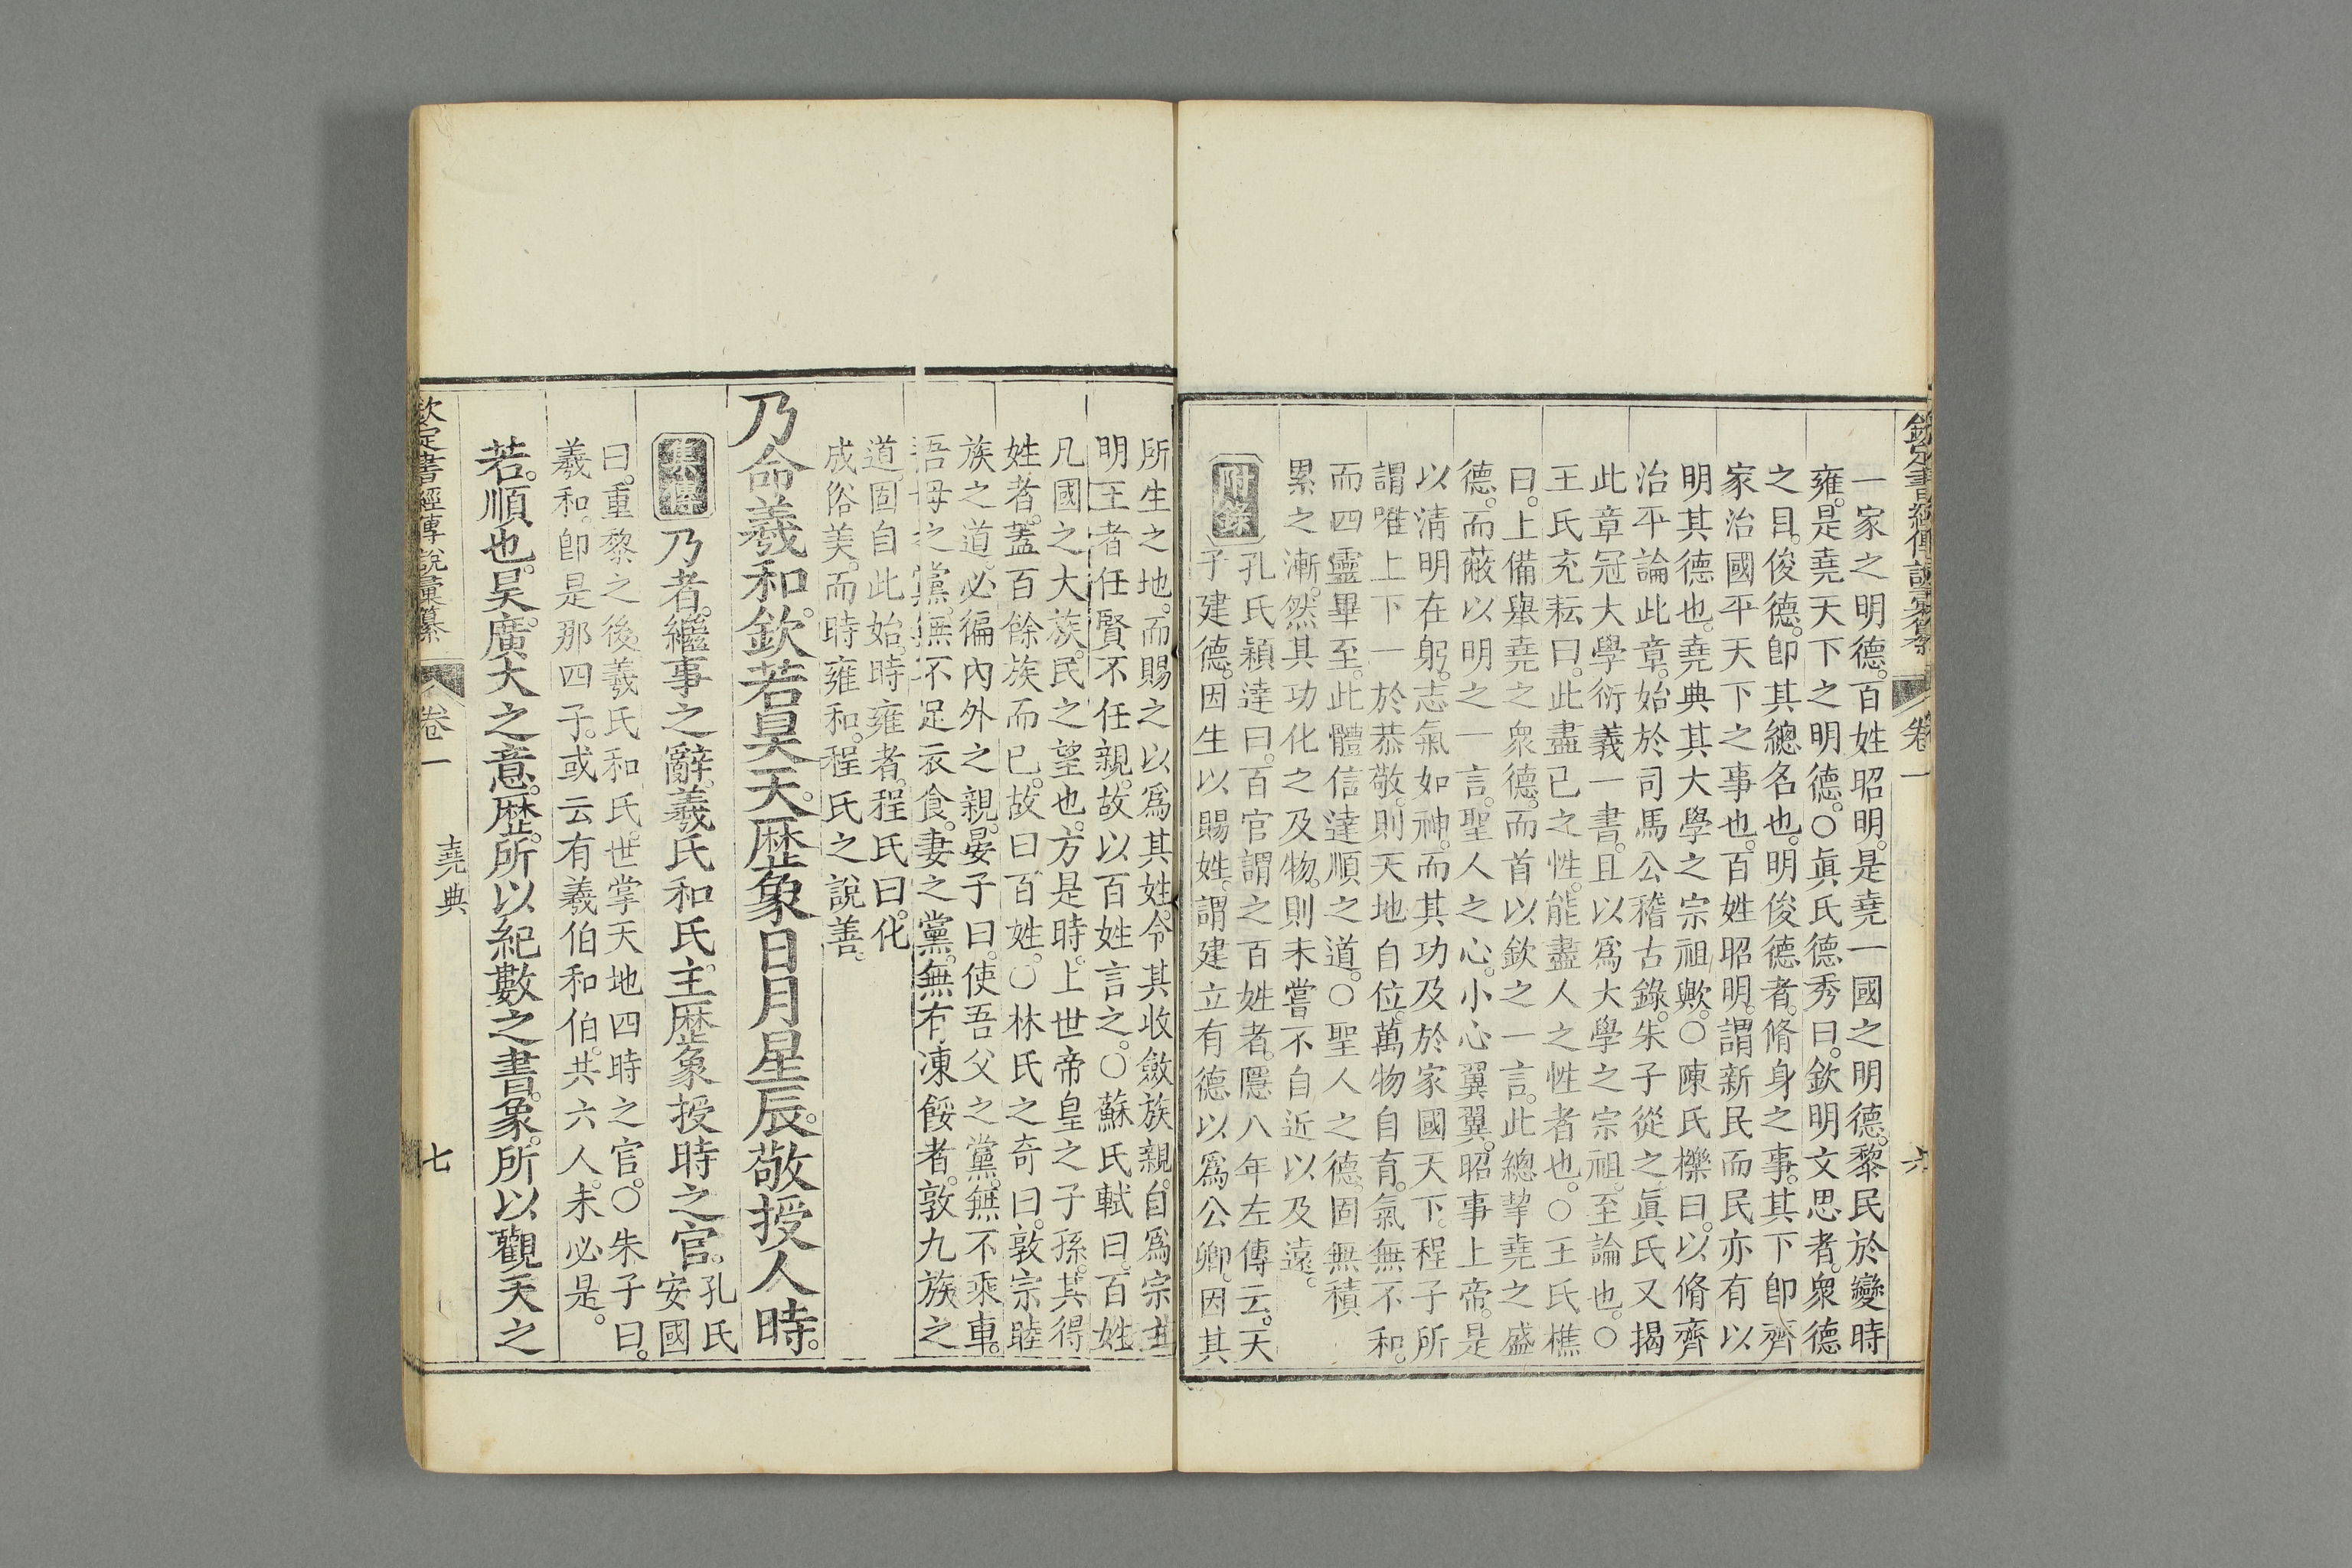 欽定書經傳說彙纂 卷一 六
一家之明德。百姓昭明。是堯一國之明德。黎民於變時
雍。是堯天下之明德。○眞氏德秀曰。欽明文思者。衆德
之目。俊德。卽其總名也。明俊德者。脩身之事。其下卽齊
家治國平天下之事也。百姓昭明。謂新民而民亦有以
明其德也。堯典其大學之宗祖歟。○陳氏櫟曰。以脩齊
治平論此章。始於司馬公稽古錄。朱子從之。眞氏又揭
此章冠大學衍義一書。且以爲大學之宗祖。至論也。○
王氏充耘曰。此盡已之性。能盡人之性者也。○王氏樵
曰。上備舉堯之衆德。而首以欽之一言。此總挈堯之盛
德。而蔽以明之一言。聖人之心。小心翼翼。昭事上帝。是
以淸明在躬。志氣如神。而其功及於家國天下。程子所
謂唯上下一於恭敬。則天地自位。萬物自育。氣無不和。
而四靈畢至。此體信達順之道。○聖人之德。固無積
累之漸。然其功化之及物。則未嘗不自近以及遠。
附錄 孔氏穎達曰。百官謂之百姓者。隱八年左傳云。天
子建德。因生以賜姓。謂建立有德以爲公卿。因其
所生之地。而賜之以爲其姓。令其收斂族親。自爲宗主。
明王者任賢不任親。故以百姓言之。○蘇氏軾曰。百姓
凡國之大族。民之望也。方是時。上世帝皇之子孫。其得
姓者。蓋百餘族而已。故曰百姓。○林氏之奇曰。敦宗睦
族之道。必徧內外之親。晏子曰。使吾父之黨。無不乘車。
吾母之黨。無不足衣食。妻之黨。無有凍餒者。敦九族之
道。固自此始。時雍者。程氏曰。化
成俗美。而時雍和。程氏之說善。
乃命羲和。欽若昊天。歷象日月星辰。敬授人時。
集傳 乃者。繼事之辭。羲氏和氏。主歷象授時之官。孔氏
安國
曰。重黎之後。羲氏和氏。世掌天地四時之官。○朱子曰。
羲和。卽是那四子。或云有羲伯和伯。共六人。未必是。
若。順也。昊。廣大之意。歷。所以紀數之書。象。所以觀天之
欽定書經傳說彙纂 卷一 堯典 七